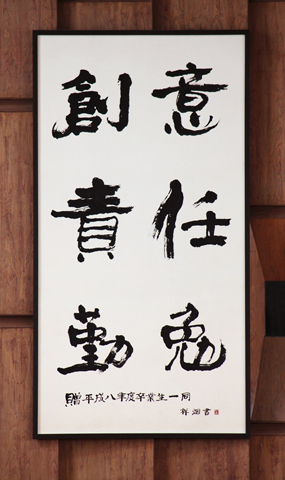 創意
責任
勤勉
贈 平成八年度卒業生一同
書